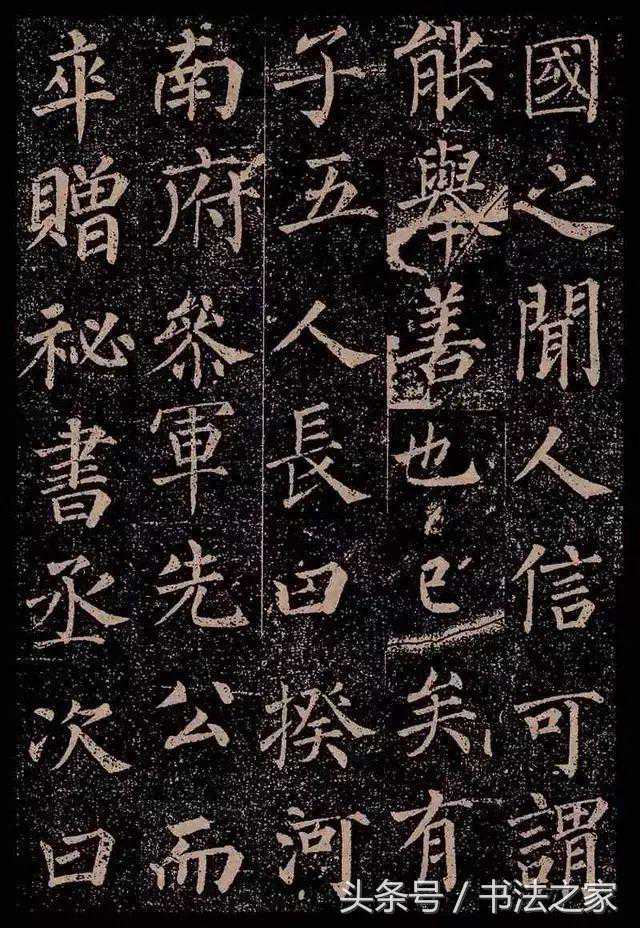 國之聞人信可謂
能舉善也已矣有
子五人長曰揆河
南府叅軍先公而
卒贈祕書丞次曰
头条号 / 书法之家